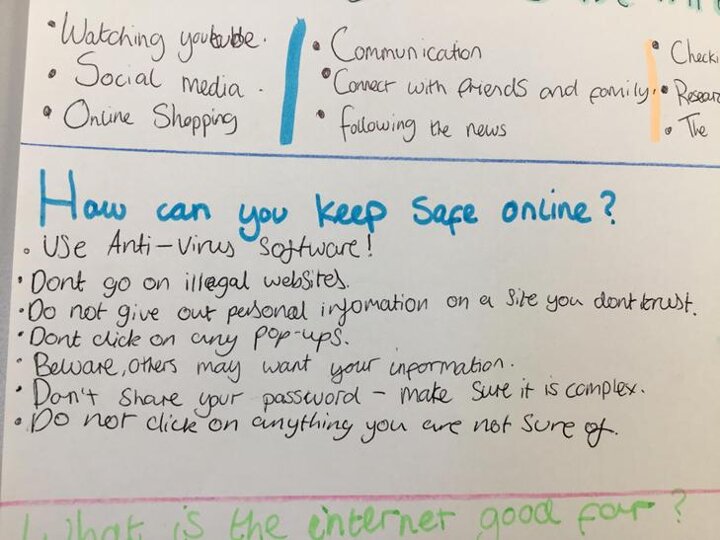 • Watching youtube.
• Social media.
• Online Shopping
• Communication
• Connect with friends and family.
• following the news
• Checki
• Resear
• The
How can you keep safe online?
• Use Anti-Virus software!
• Dont go on illegal websites.
• Do not give out personal infomation on a site you dont trust.
• Dont click on any pop-ups.
• Beware, others may want your information.
• Don't share your password - make sure it is complex.
• Do not click on anything you are not sure of.
What is the internet good for?